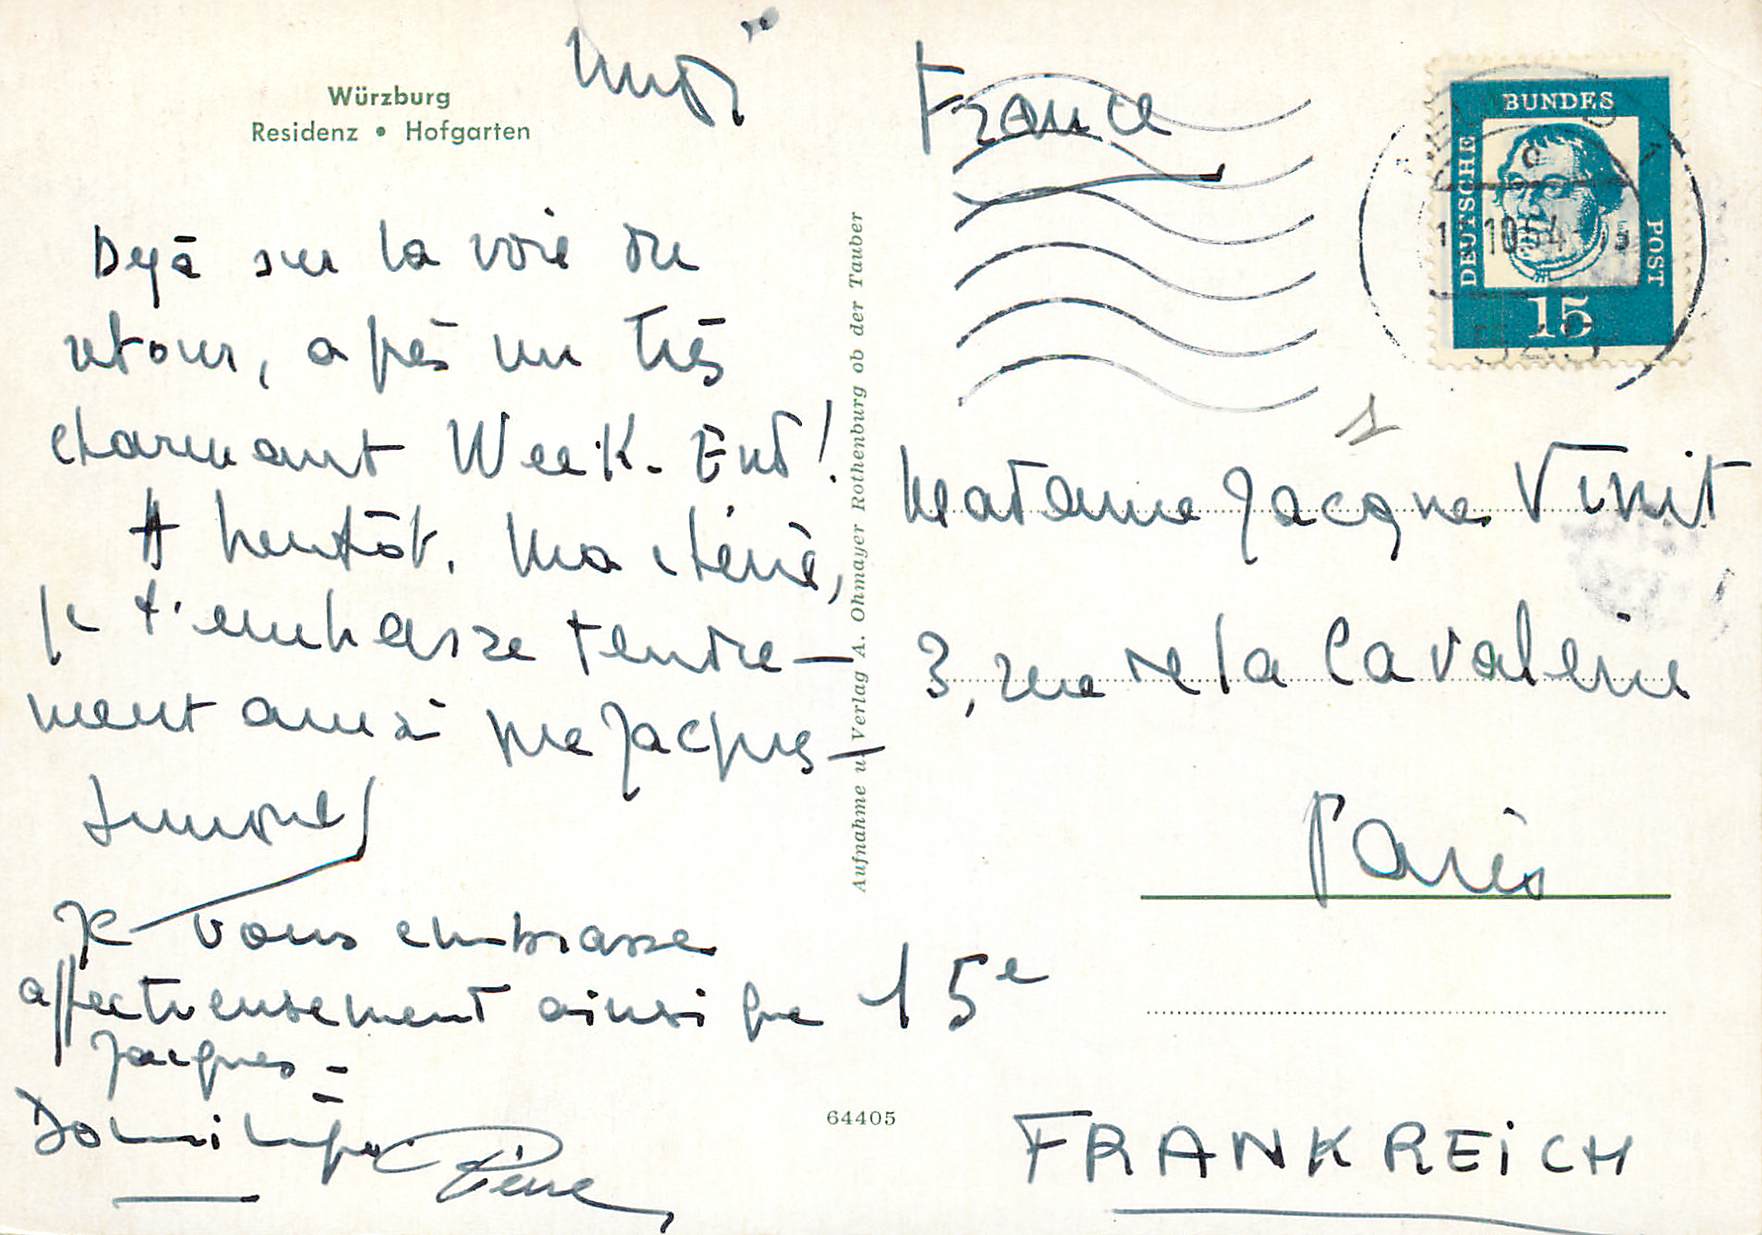 Würzburg
Residenz • Hofgarten
Mardi
Dejà sur la voie du
retour, après un très
charmant Week-End!
A bientôt. Ma chérie,
je t'embrasse tendre-
ment ainsi que Jacques-
Simone
Je vous embrasse
affectueusement ainsi que
Jacques-
Dominique
Pierre
Aufnahme u. Verlag A. Ohmayer Rothenburg ob der Tauber
64405
France
DEUTSCHE BUNDESPOST
15
Madame Jacques
3, rue de la Cavalerie
Paris
15e
FRANKREICH